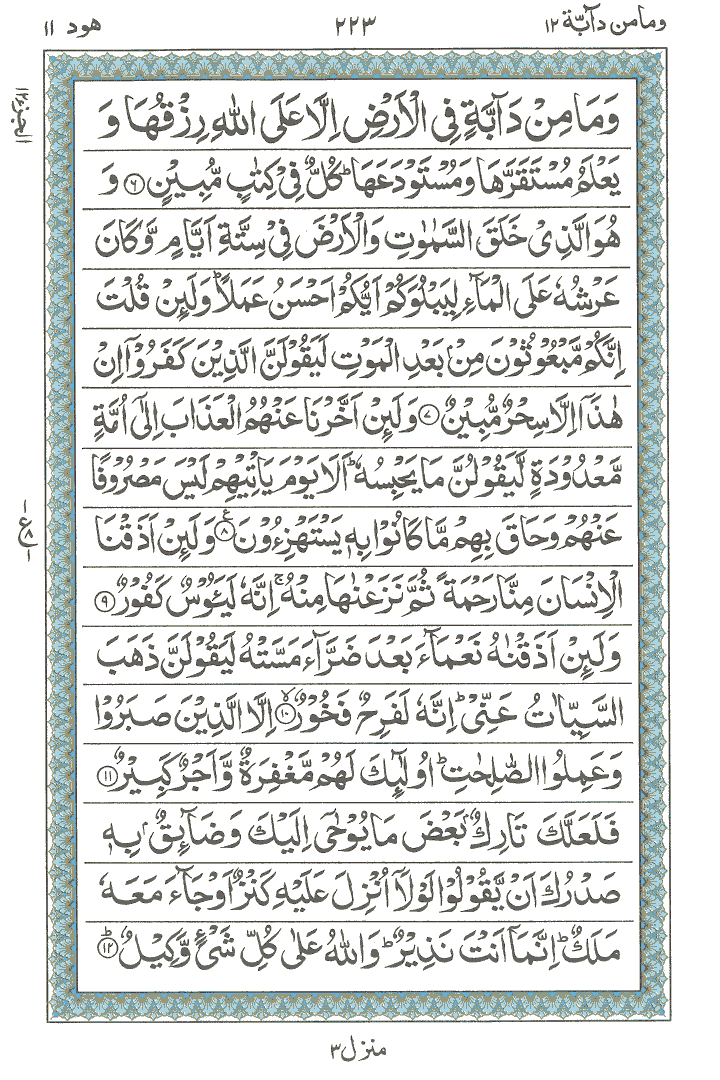 ومامن دآبة ١٢
٢٢٣
هود ١١
الجزء ١٢
وَمَا مِنْ دَآبَّةٍ فِي الْاَرْضِ اِلَّا عَلَى اللهِ رِزْقُهَا وَ
يَعْلَمُ مُسْتَقَرَّهَا وَمُسْتَوْدَعَهَا ؕ كُلٌّ فِيْ كِتٰبٍ مُّبِيْنٍ ۝٦ وَ
هُوَ الَّذِيْ خَلَقَ السَّمٰوٰتِ وَالْاَرْضَ فِيْ سِتَّةِ اَيَّامٍ وَّكَانَ
عَرْشُهٗ عَلَى الْمَآءِ لِيَبْلُوَكُمْ اَيُّكُمْ اَحْسَنُ عَمَلًا ؕ وَلَئِنْ قُلْتَ
اِنَّكُمْ مَّبْعُوْثُوْنَ مِنْۢ بَعْدِ الْمَوْتِ لَيَقُوْلَنَّ الَّذِيْنَ كَفَرُوْۤا اِنْ
هٰذَاۤ اِلَّا سِحْرٌ مُّبِيْنٌ ۝٧ وَلَئِنْ اَخَّرْنَا عَنْهُمُ الْعَذَابَ اِلٰۤى اُمَّةٍ
مَّعْدُوْدَةٍ لَّيَقُوْلُنَّ مَا يَحْبِسُهٗ ؕ اَلَا يَوْمَ يَاْتِيْهِمْ لَيْسَ مَصْرُوْفًا
عَنْهُمْ وَحَاقَ بِهِمْ مَّا كَانُوْا بِهٖ يَسْتَهْزِءُوْنَ ۝٨ ع وَلَئِنْ اَذَقْنَا
-ع ٨-
الْاِنْسَانَ مِنَّا رَحْمَةً ثُمَّ نَزَعْنٰهَا مِنْهُ ۚ اِنَّهٗ لَيَـُٔوْسٌ كَفُوْرٌ ۝٩
وَلَئِنْ اَذَقْنٰهُ نَعْمَآءَ بَعْدَ ضَرَّآءَ مَسَّتْهُ لَيَقُوْلَنَّ ذَهَبَ
السَّيِّاٰتُ عَنِّيْ ؕ اِنَّهٗ لَفَرِحٌ فَخُوْرٌ ۝١٠ۙ اِلَّا الَّذِيْنَ صَبَرُوْا
وَعَمِلُوا الصّٰلِحٰتِ ؕ اُولٰٓئِكَ لَهُمْ مَّغْفِرَةٌ وَّاَجْرٌ كَبِيْرٌ ۝١١
فَلَعَلَّكَ تَارِكٌۢ بَعْضَ مَا يُوْحٰۤى اِلَيْكَ وَضَآئِقٌۢ بِهٖ
صَدْرُكَ اَنْ يَّقُوْلُوْا لَوْلَاۤ اُنْزِلَ عَلَيْهِ كَنْزٌ اَوْ جَآءَ مَعَهٗ
مَلَكٌ ؕ اِنَّمَاۤ اَنْتَ نَذِيْرٌ ؕ وَاللهُ عَلٰى كُلِّ شَيْءٍ وَّكِيْلٌ ۝١٢ؕ
منزل ٣